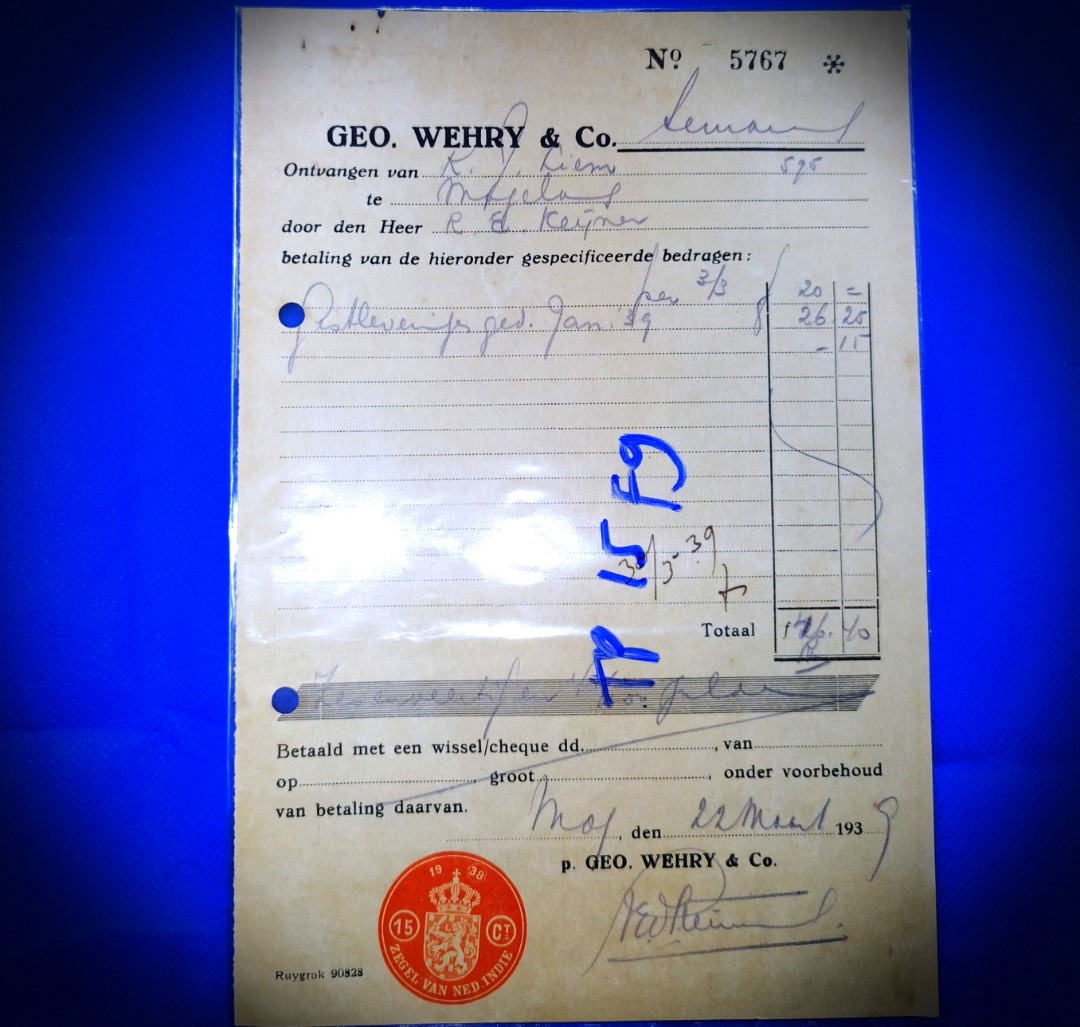 Nº 5767 *
GEO. WEHRY & Co. Semarang
Ontvangen van K. J. Liem 595
te Magelang
door den Heer R E. Keijner
betaling van de hieronder gespecificeerde bedragen:
per 3/3 20 =
Gistleverings ged. Jan. '39 f 26 25
- 15
TP 15 F9
30/3-39
Totaal f 46. 40
gulden
Betaald met een wissel/cheque dd. , van
op , groot , onder voorbehoud
van betaling daarvan.
Mag, den 22 Maart 1939
p. GEO. WEHRY & Co.
1938
15 CT
ZEGEL VAN NED. INDIE
Ruygrok 90828